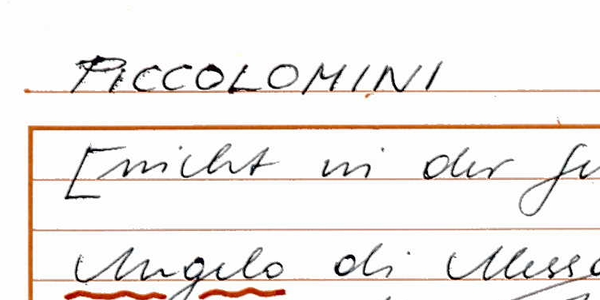 PICCOLOMINI
[nicht in der
Angelo di